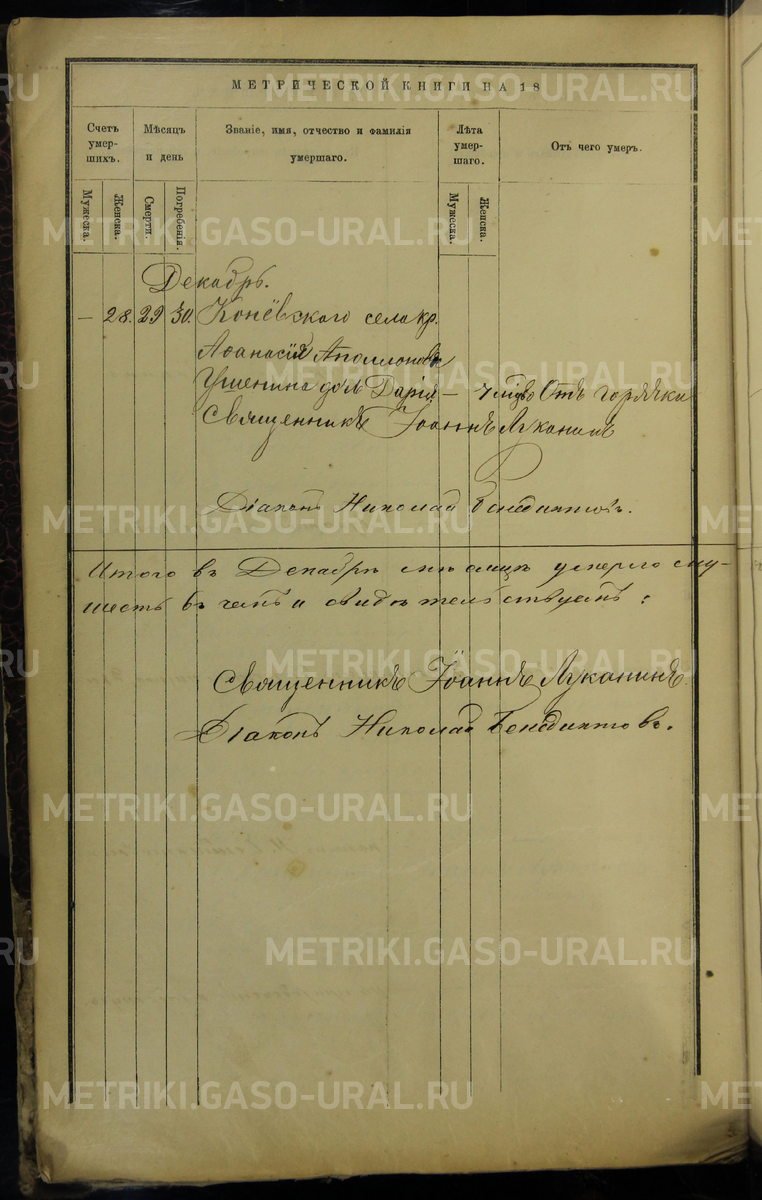 МЕТРИЧЕСКОЙ КНИГИ НА 18
Счетъ умер-шихъ.
Мѣсяцъ и день
Званіе, имя, отчество и фамилія умершаго.
Лѣта умер-шаго.
Отъ чего умеръ.
Мужеска.
Женска.
Смерти.
Погребенія.
Мужеска.
Женска.
Декабрь.
— 28. 29 30. Конёвскаго села кр.
Аѳанасія Аполлонова
Ушенина дочь Дарія — 7 мцевъ Отъ горячки
Священникъ Іоаннъ Луканинъ
Діаконъ Николай Бенедиктовъ.
Итого въ Декабрѣ мѣсяцѣ умерло
шесть въ чемъ и свидѣтельствуемъ:
Священникъ Іоаннъ Луканинъ
Діаконъ Николай Бенедиктовъ.
METRIKI.GASO-URAL.RU